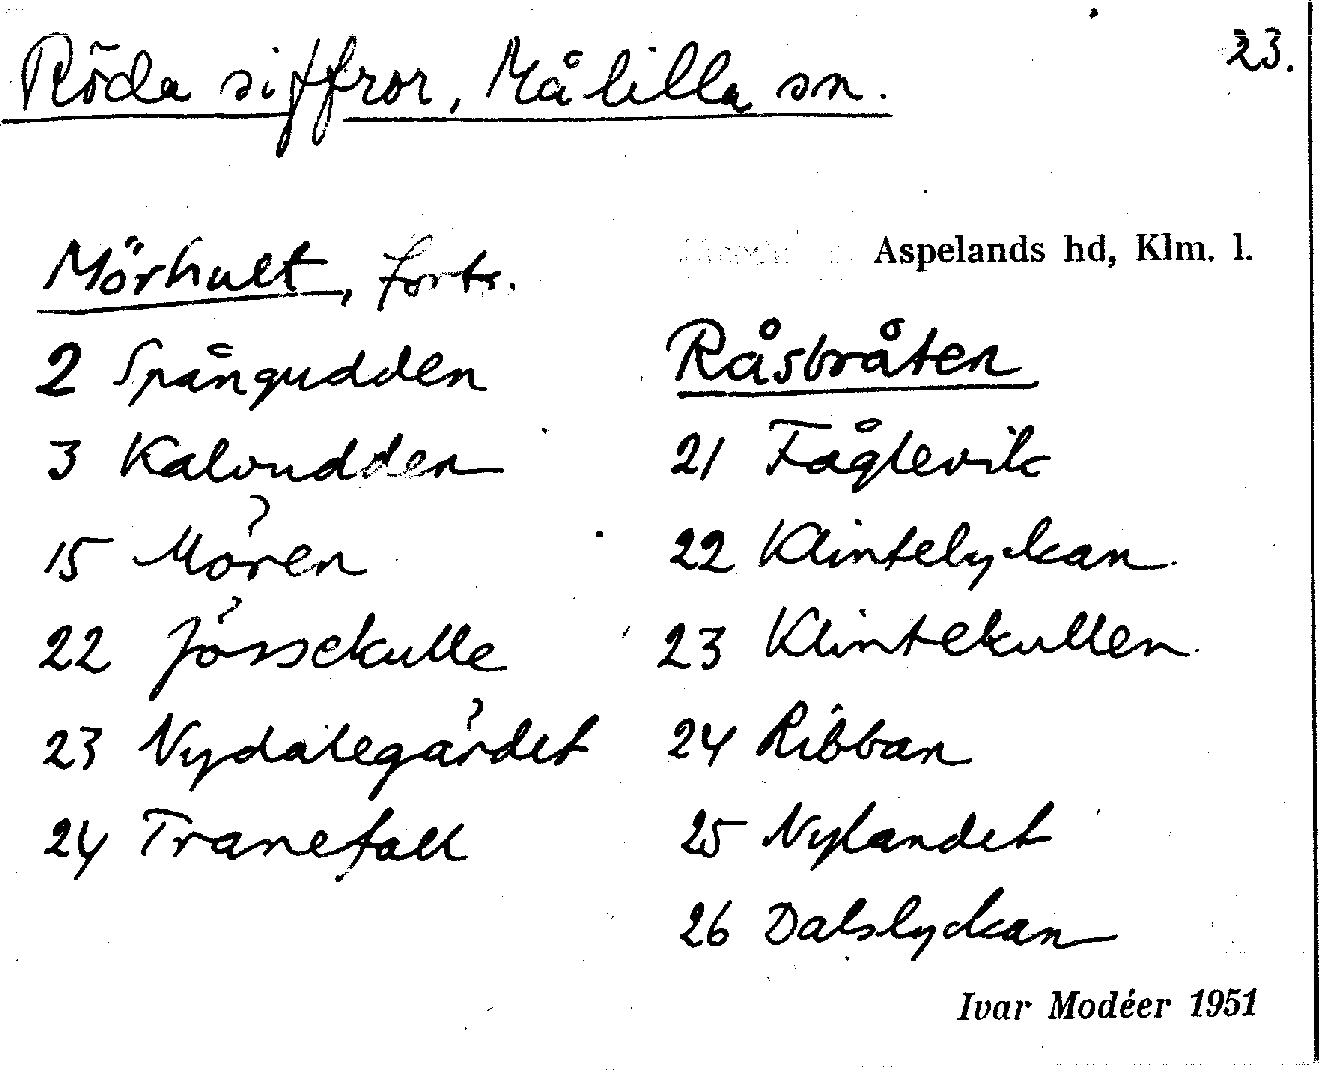 23.
Röda siffror, Målilla sn.
Aspelands hd, Klm. l.
Mörhult, forts.
2 Spångudden
3 Kalvudden
15 Mören
22 Jössekulle
23 Nydalegärdet
24 Tranefall
Råsbråten
21 Fåglevik
22 Klintelyckan
23 Klintekullen
24 Ribban
25 Nylandet
26 Dalslyckan
Ivar Modéer 1951